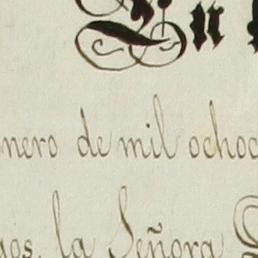 En
nero de mil ochoc
gos, la Señora